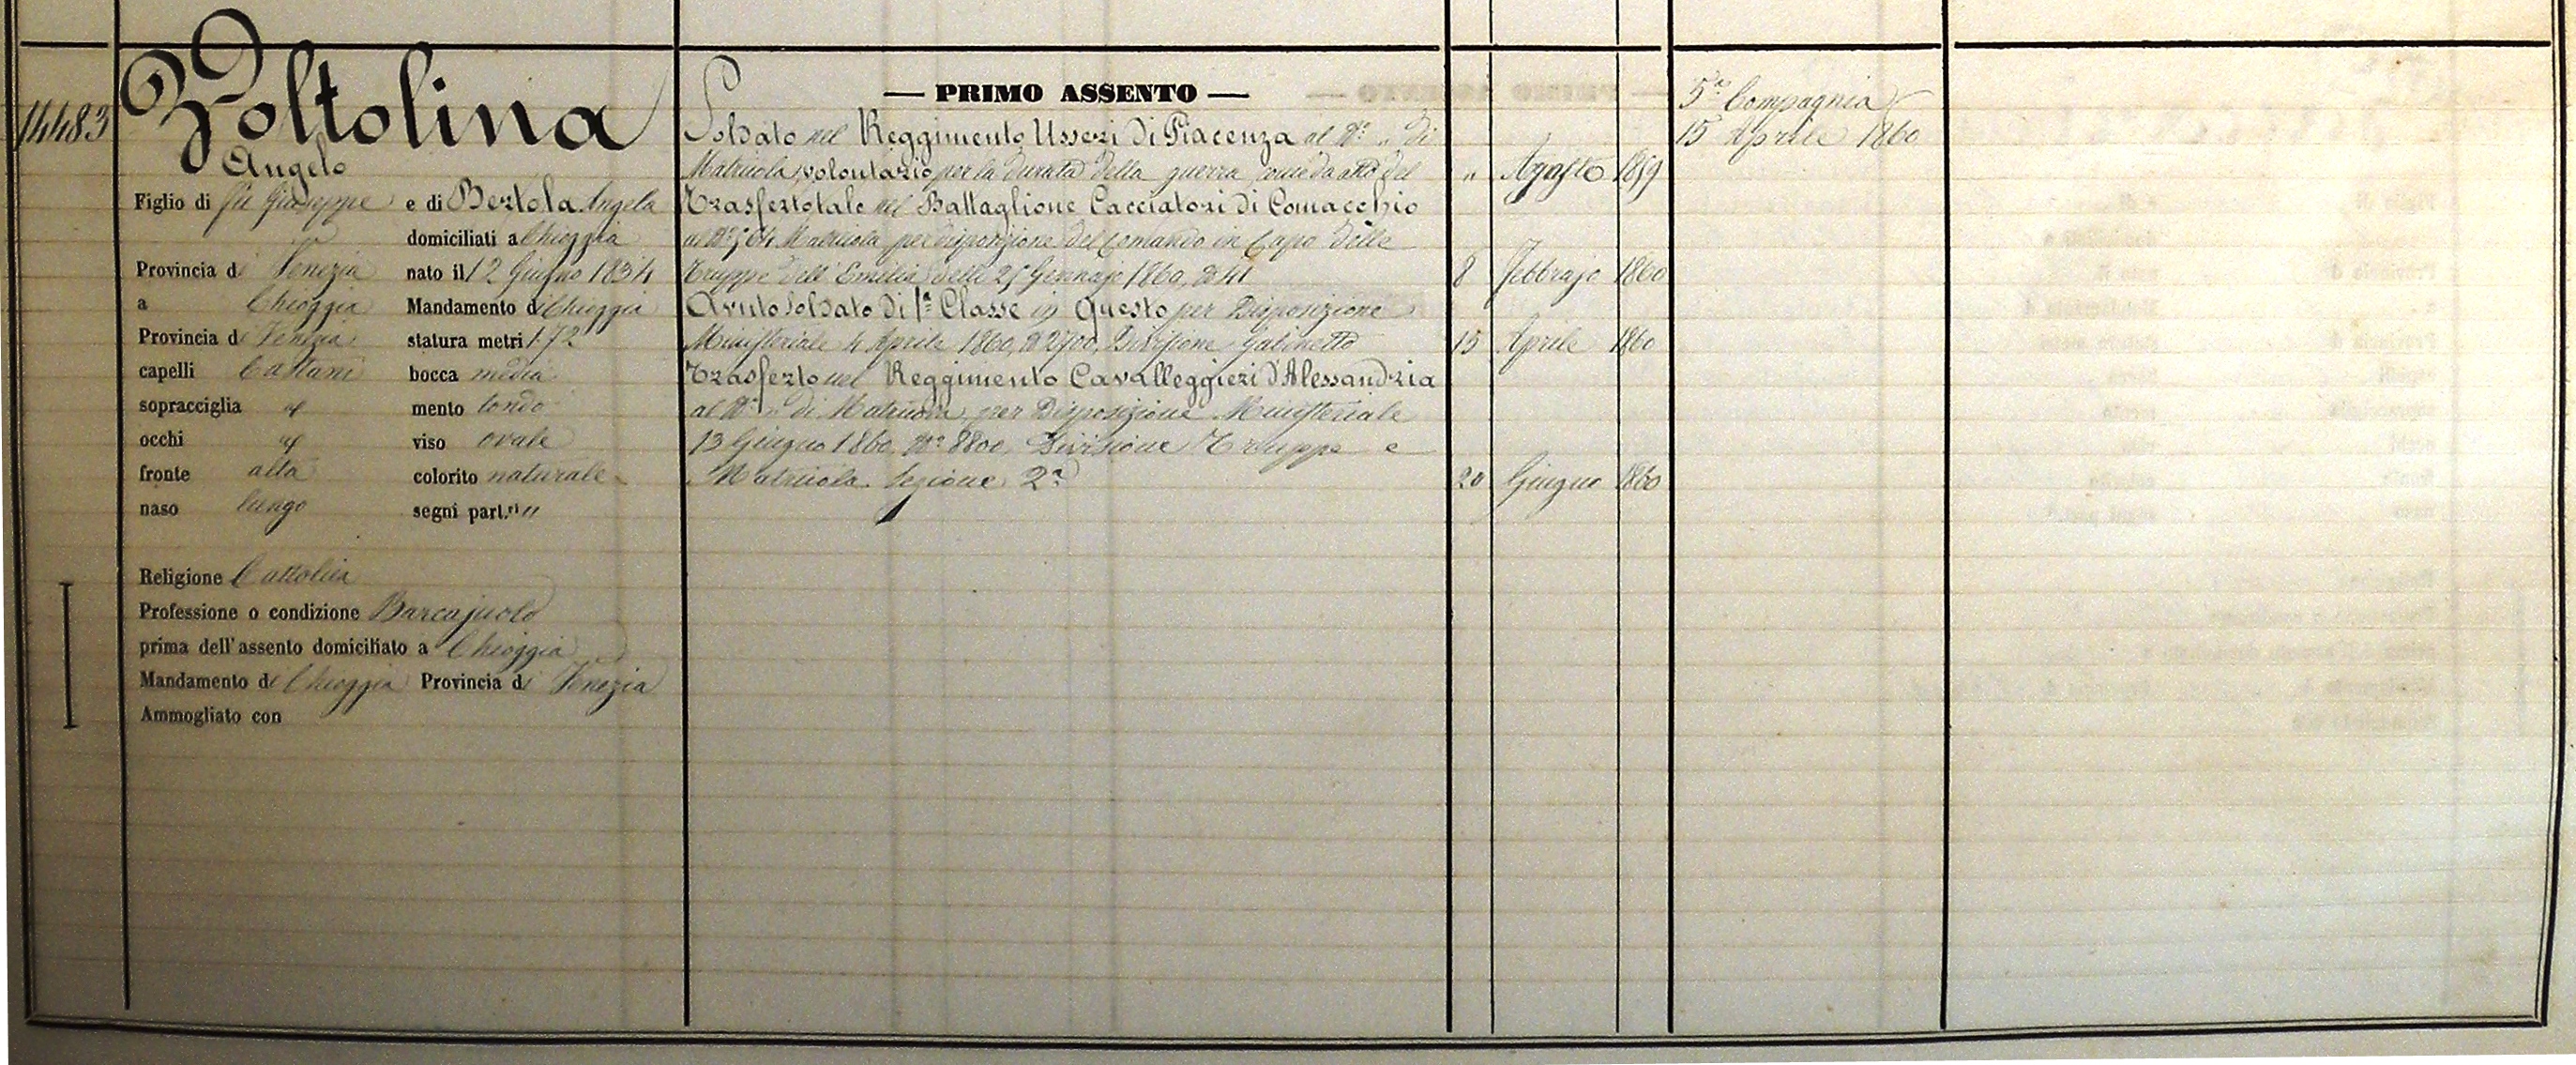 14483
Zoltolina
Angelo
Figlio di fu Giuseppe e di Bertola Angela
domiciliati a Chioggia
Provincia di Venezia nato il 12 Giugno 1834
a Chioggia Mandamento di Chioggia
Provincia di Venezia statura metri 1.72
capelli Castani bocca media
sopracciglia id mento tondo
occhi id viso ovale
fronte alta colorito naturale
naso lungo segni part.ri "
Religione Cattolica
Professione o condizione Barcajuolo
prima dell'assento domiciliato a Chioggia
Mandamento di Chioggia Provincia di Venezia
Ammogliato con
— PRIMO ASSENTO —
Soldato nel Reggimento Usseri di Piacenza al N.° " di
Matricola, volontario per la durata della guerra come da atto del " Agosto 1859
Trasferto tale nel Battaglione Cacciatori di Comacchio
al N.° 564 Matricola per disposizione del Comando in Capo delle
Truppe dell'Emilia delli 25 Gennajo 1860, N.° 41 8 Febbrajo 1860
Avuto Soldato di 1.a Classe in Questo per Disposizione
Ministeriale 4 Aprile 1860, N.° 2700, Divisione Gabinetto 15 Aprile 1860
Trasferto nel Reggimento Cavalleggieri d'Alessandria
al N.° " di Matricola per Disposizione Ministeriale
13 Giugno 1860, N.° 8800, Divisione Truppe e
Matricola Sezione 2.a 20 Giugno 1860
5.a Compagnia
15 Aprile 1860